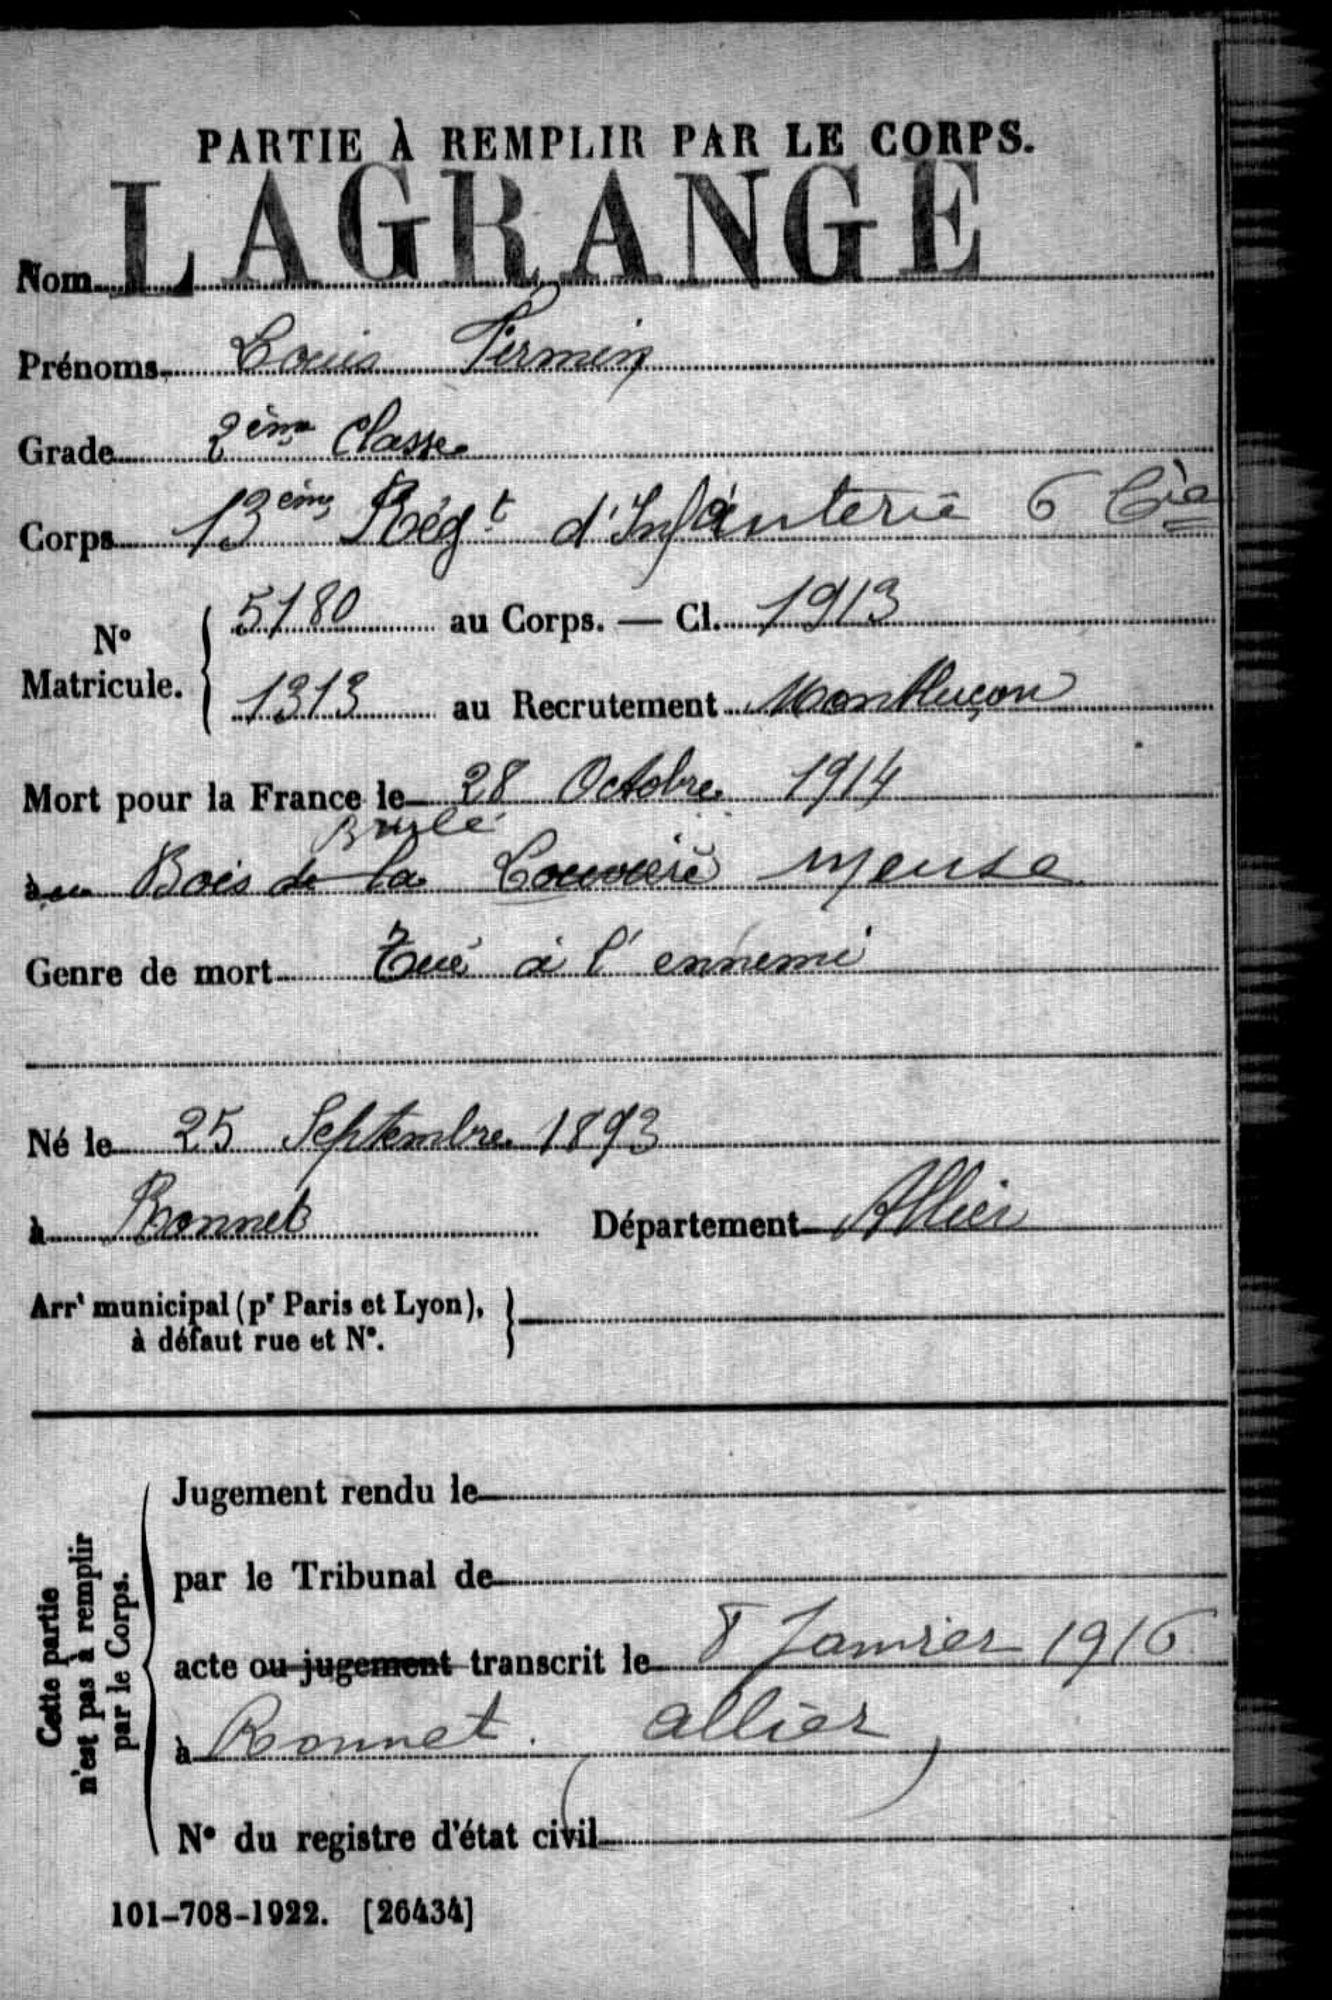 PARTIE À REMPLIR PAR LE CORPS.
Nom LAGRANGE
Prénoms Louis Firmin
Grade 2ème Classe
Corps 13ème Régt d'Infanterie 6 Cie
N° Matricule. { 5180 au Corps. — Cl. 1913
1313 au Recrutement Montluçon
Mort pour la France le 28 Octobre 1914
Brulé
au Bois de la Meuse
Genre de mort Tué à l'ennemi
Né le 25 Septembre 1893
à Ronnet Département Allier
Arrt municipal (pr Paris et Lyon),
à défaut rue et N°.
Cette partie
n'est pas à remplir
par le Corps.
Jugement rendu le
par le Tribunal de
acte ou jugement transcrit le 8 Janvier 1916
à Ronnet (allier)
N° du registre d'état civil
101-708-1922. [26434]